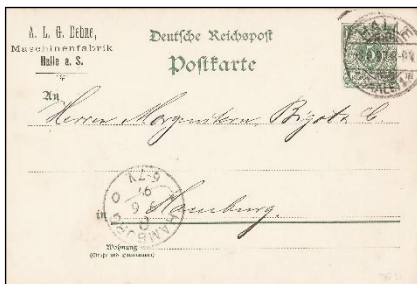 A. L. G. Dehne,
Maschinenfabrik
Halle a. S.
Deutsche Reichspost
Postkarte
HALLE
An
Herren Morgenstern, Bigot & C.
in Hamburg.
HAMBURG
Wohnung
(Straße und Hausnummer)